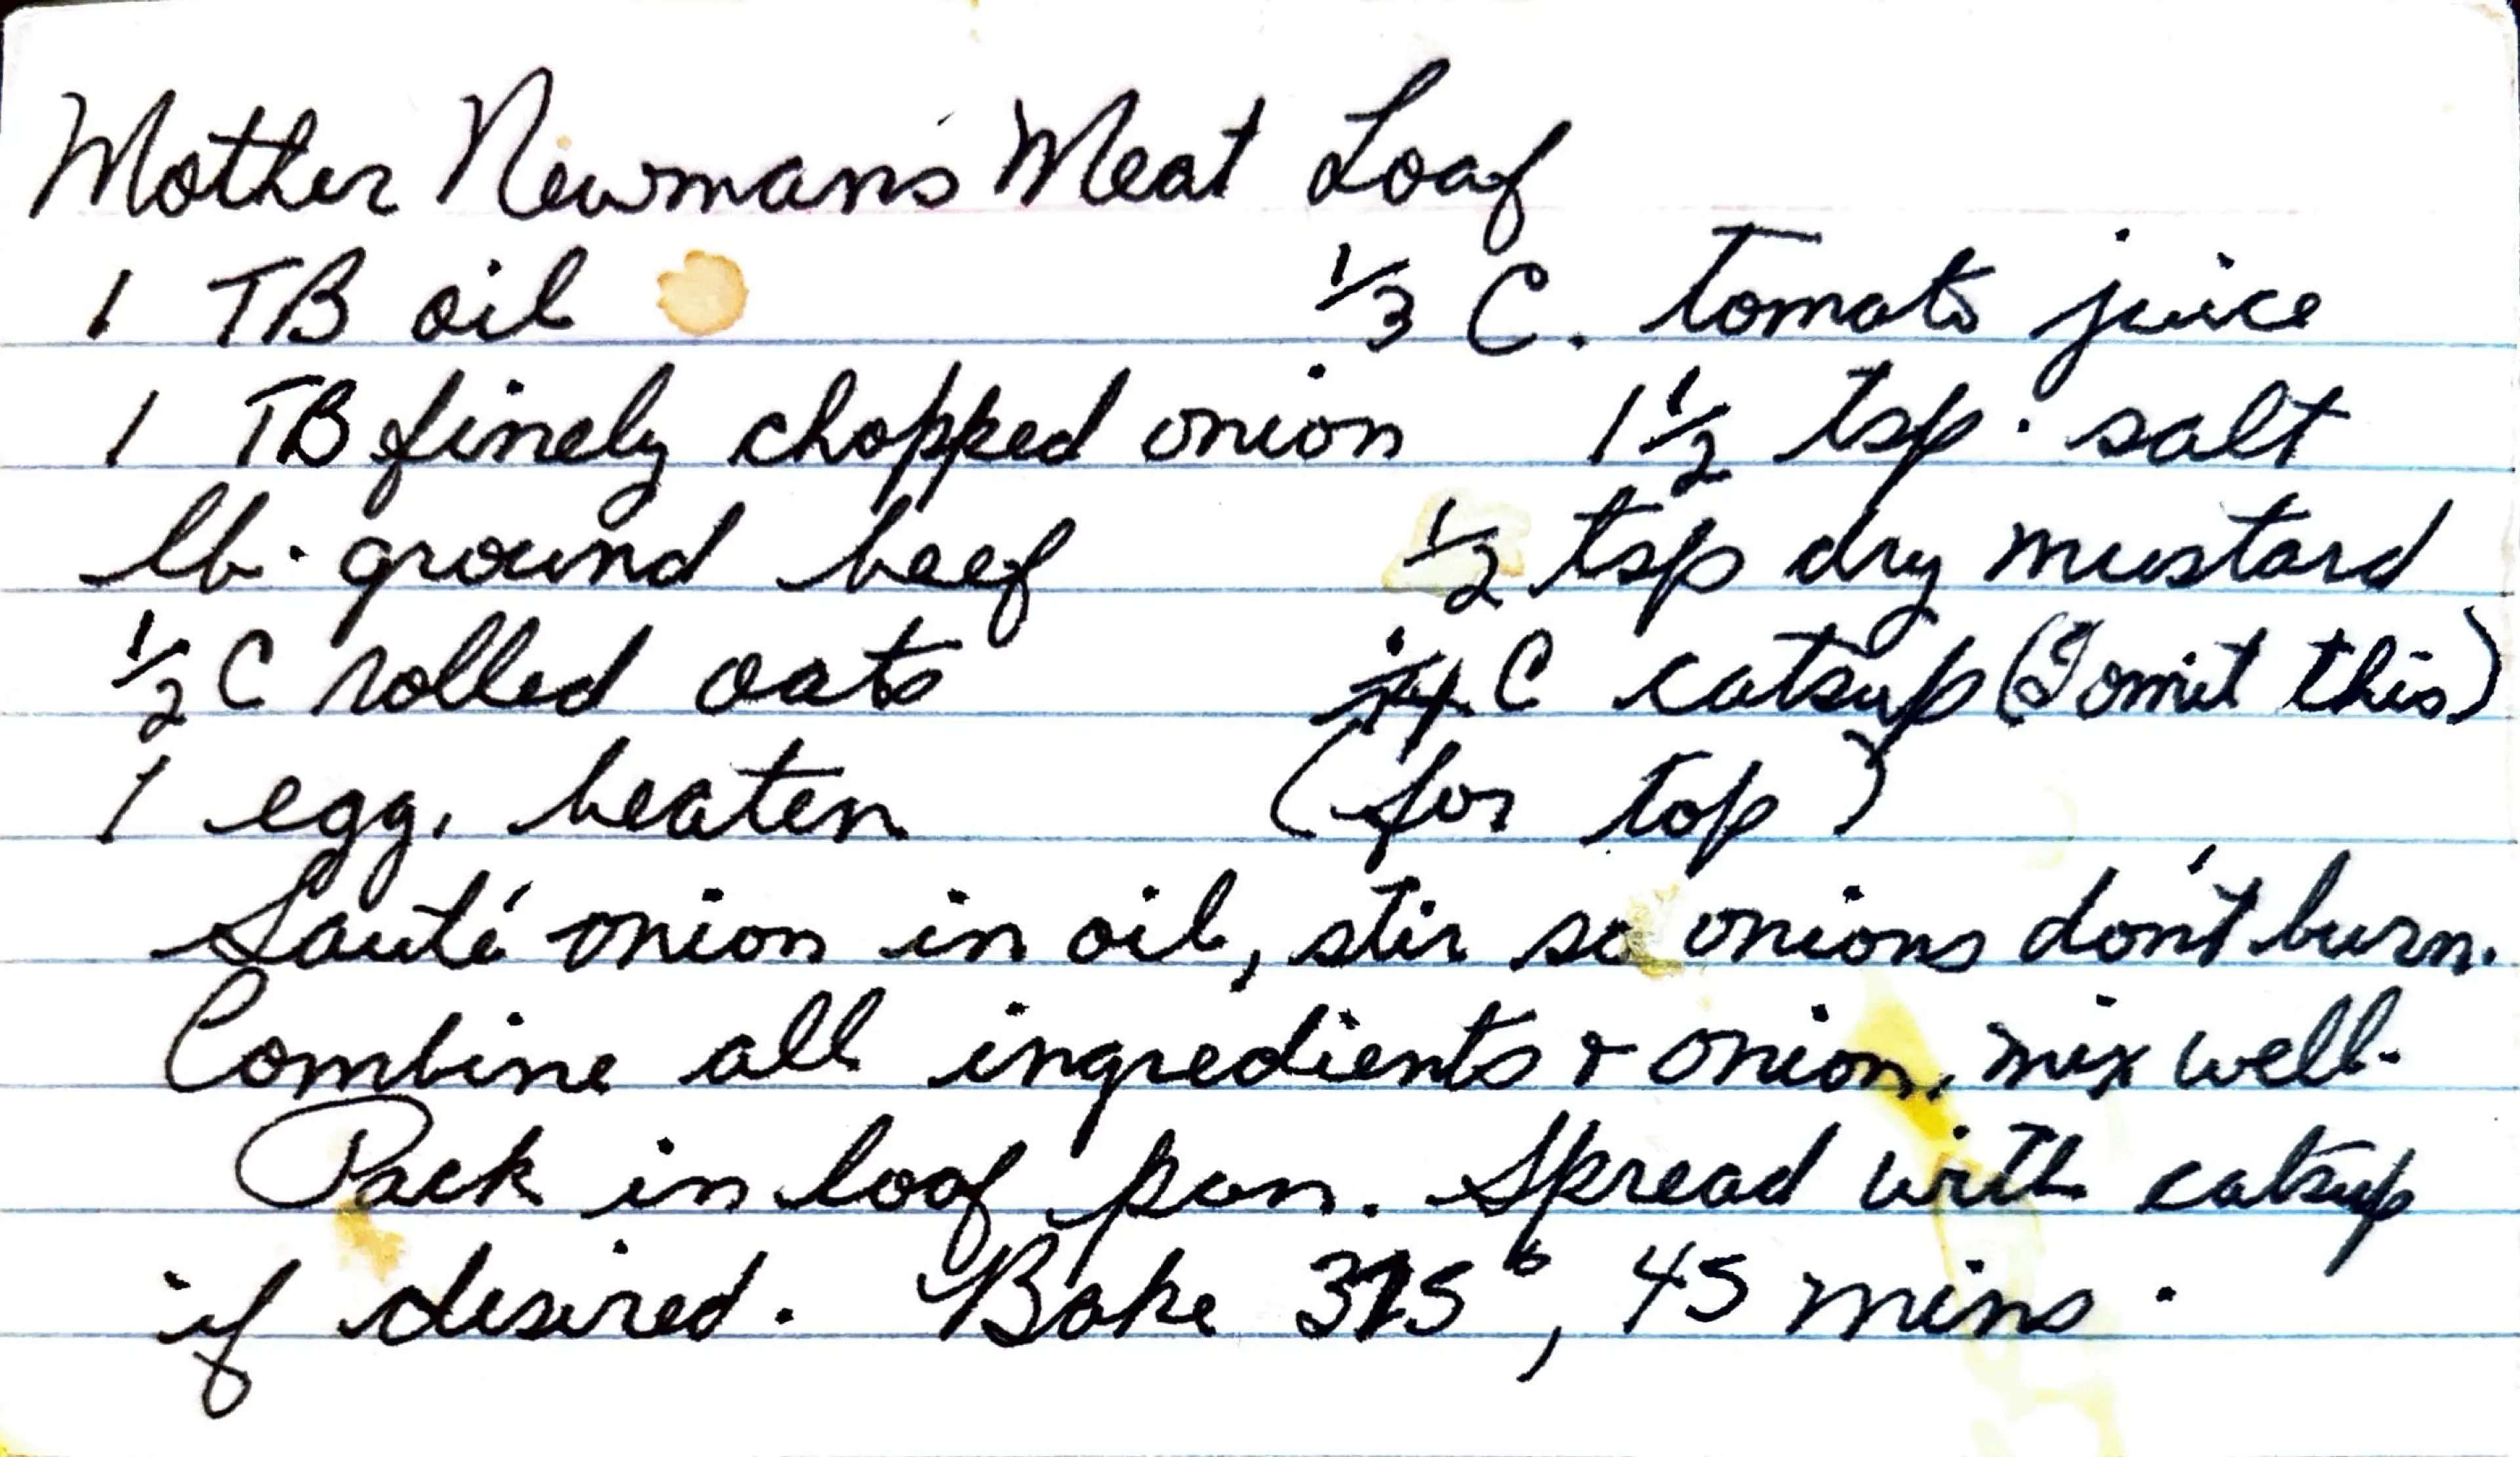 Mother Newman's Meat Loaf
1 TB oil 1/3 C. tomato juice
1 TB finely chopped onion 1 1/2 tsp. salt
lb. ground beef 1/2 tsp dry mustard
1/2 C rolled oats 1/4 C catsup (I omit this)
1 egg, beaten (for top)
Sauté onion in oil, stir so onions don't burn.
Combine all ingredients & onion, mix well.
Pack in loaf pan. Spread with catsup
if desired. Bake 375°, 45 mins.